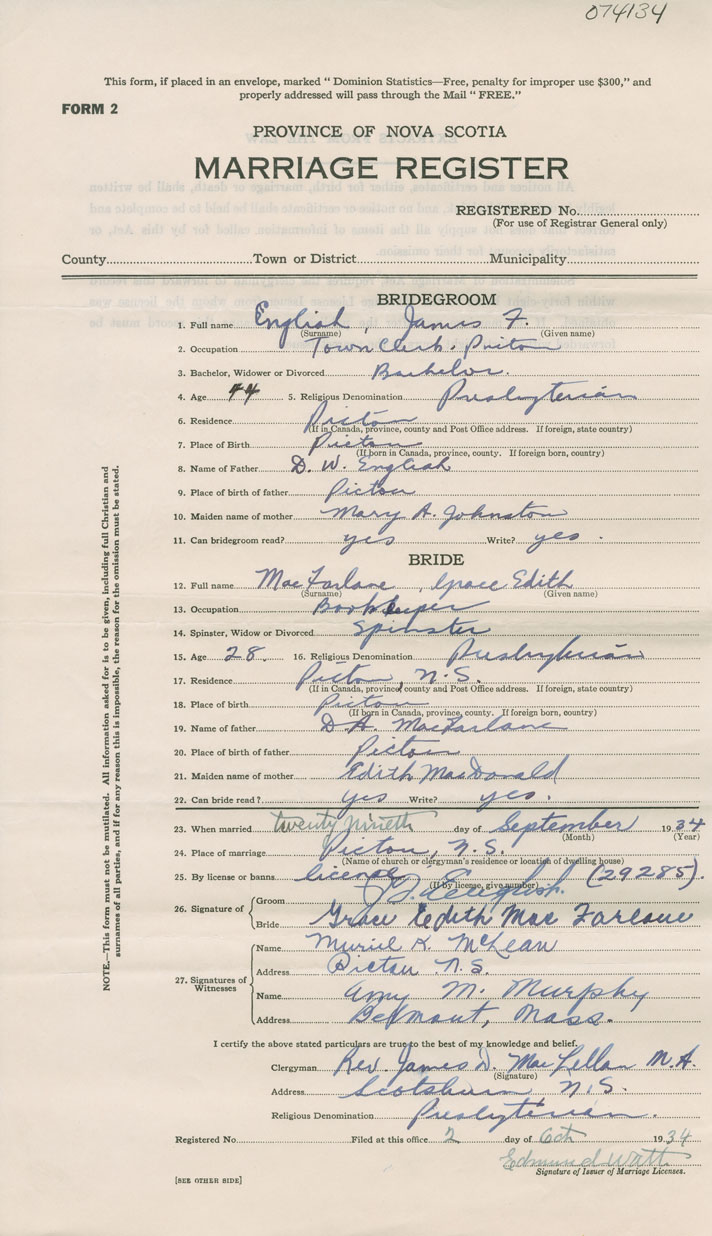 074134
This form, if placed in an envelope, marked " Dominion Statistics—Free, penalty for improper use $300," and
properly addressed will pass through the Mail " FREE."
FORM 2
PROVINCE OF NOVA SCOTIA
MARRIAGE REGISTER
REGISTERED No.
(For use of Registrar General only)
County Town or District Municipality
BRIDEGROOM
1. Full name English, James F.
(Surname) (Given name)
2. Occupation Town Clerk. Pictou
3. Bachelor, Widower or Divorced Bachelor.
4. Age 44 5. Religious Denomination Presbyterian
6. Residence Pictou
(If in Canada, province, county and Post Office address. If foreign, state country)
7. Place of Birth Pictou
(If born in Canada, province, county. If foreign born, country)
8. Name of Father D. W. English
9. Place of birth of father Pictou
10. Maiden name of mother Mary A. Johnston
11. Can bridegroom read? yes Write? yes.
BRIDE
12. Full name MacFarlane, Grace Edith
(Surname) (Given name)
13. Occupation Bookkeeper
14. Spinster, Widow or Divorced Spinster
15. Age 28. 16. Religious Denomination Presbyterian
17. Residence Pictou, N.S.
(If in Canada, province, county and Post Office address. If foreign, state country)
18. Place of birth Pictou
(If born in Canada, province, county. If foreign born, country)
19. Name of father D. A. MacFarlane
20. Place of birth of father Pictou
21. Maiden name of mother Edith MacDonald
22. Can bride read? yes Write? yes.
23. When married twenty nineth day of September 1934
(Month) (Year)
24. Place of marriage Pictou, N.S.
(Name of church or clergyman's residence or location of dwelling house)
25. By license or banns license (29285).
(If by license, give number)
26. Signature of Groom English.
Bride Grace Edith MacFarlane
27. Signatures of Witnesses
Name Muriel K. McLean
Address Pictou N.S.
Name Amy M. Murphy
Address Belmont, Mass.
I certify the above stated particulars are true to the best of my knowledge and belief.
Clergyman Rev. James D. MacLellan M.A.
(Signature)
Address Scotsburn N.S.
Religious Denomination Presbyterian.
Registered No. Filed at this office 2 day of Oct 1934
Edmund Watt
Signature of Issuer of Marriage Licenses.
[SEE OTHER SIDE]
NOTE.—This form must not be mutilated. All information asked for is to be given, including full Christian and
surnames of all parties, and if for any reason this is impossible, the reason for the omission must be stated.